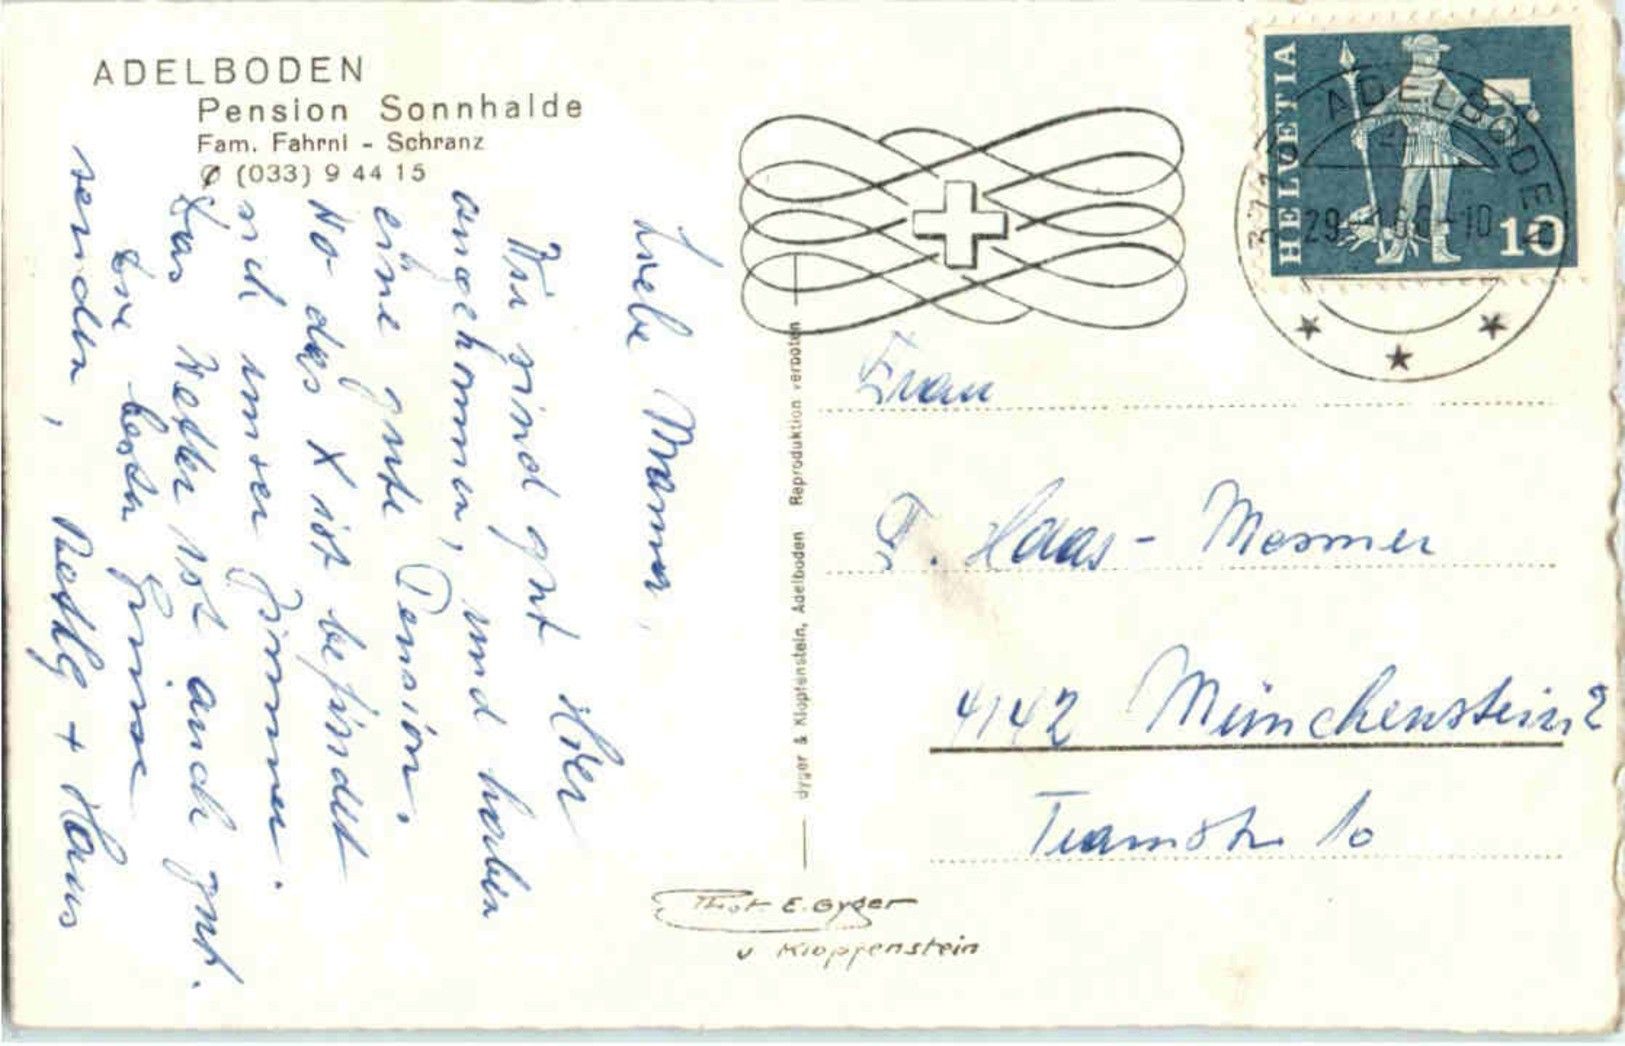 ADELBODEN
Pension Sonnhalde
Fam. Fahrni - Schranz
✆ (033) 9 44 15
Liebe Mama,
Wir sind gut Hier
angekommen, und haben
eine gute Pension.
Wo das X ist befindet
sich unser Zimmer.
Das Wetter ist auch gut.
Die besten Grüsse
senden, + Hans
Gyger & Klopfenstein, Adelboden Reproduktion verboten
HELVETIA
10
ADELBODEN
Frau
Haas - Mesmer
4142 Münchenstein 2
Tramstr. 10
Phot. E. Gyger
u Klopfenstein